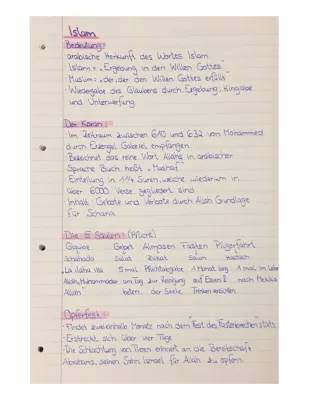 Islam
Bedeutung:
arabische Herkunft des Wortes Islam
Islam = "Ergebung in den Willen Gottes"
Muslim = "der, der den Willen Gottes erfüllt"
Wiedergabe des Glaubens durch Ergebung, Hingabe
und Unterwerfung
Der Koran:
Im Zeitraum zwischen 610 und 632 von Mohammed
durch Erzengel Gabriel empfangen
Bezeichnet das reine Wort Allahs in arabischer
Sprache Buch heißt "Mushaf"
Einteilung in 114 Suren, welche wiederum in
über 6000 Verse gegliedert sind
Inhalt: Gebote und Verbote durch Allah Grundlage
für Scharia
Die 5 Säulen (Pflicht)
Glaube Gebet Almosen Fasten Pilgerfahrt
Schahada Salat Zakat Saum Hadsch
La ilaha illa 5 mal Pflichtabgabe 1 Monat lang 1 mal im Leben
Allah, Muhammadar am Tag zur Reinigung auf Essen & nach Mekka
Allah beten der Seele Trinken verzichten
Opferfest:
Findet zweieinhalb Monate nach dem Fest des Fastenbrechens statt
Erstreckt sich über vier Tage
Die Schlachtung von Tieren erinnert an die Bereitschaft
Abrahams, seinen Sohn Ismael für Allah zu opfern